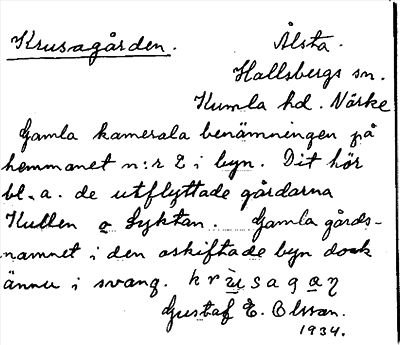 Krusagården. Ålsta.
Hallsbergs sn.
Kumla hd. Närke
Gamla kamerala benämningen på
hemmanet n:r 2 i byn. Dit hör
bl. a. de utflyttade gårdarna
Kullen o Lyktan. Gamla gårds-
namnet i den oskiftade byn dock
ännu i svang. krùsagaη
Gustaf E. Olsson.
1934.